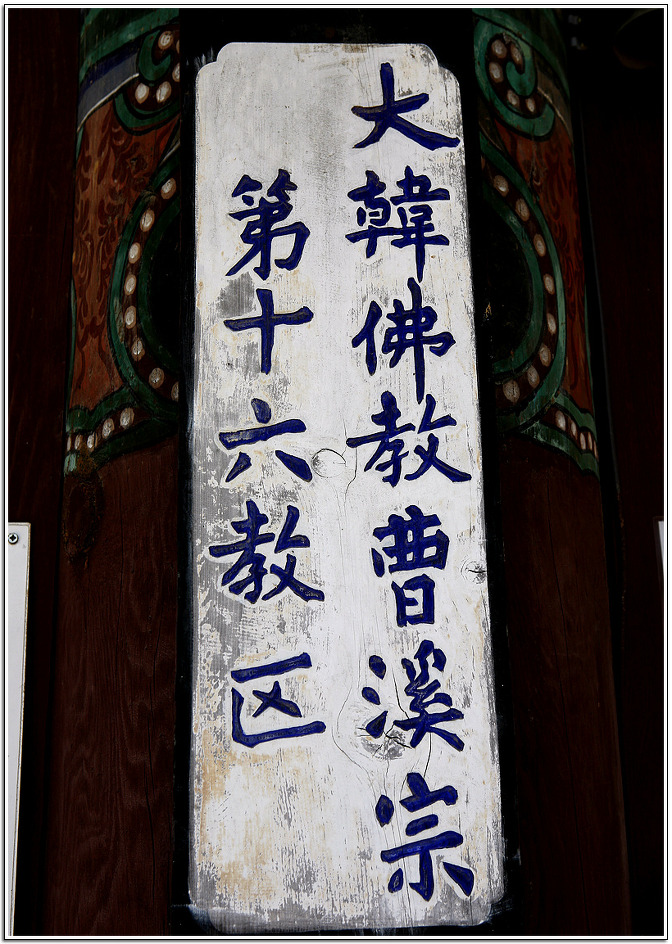 大韓佛教曹溪宗
第十六教区